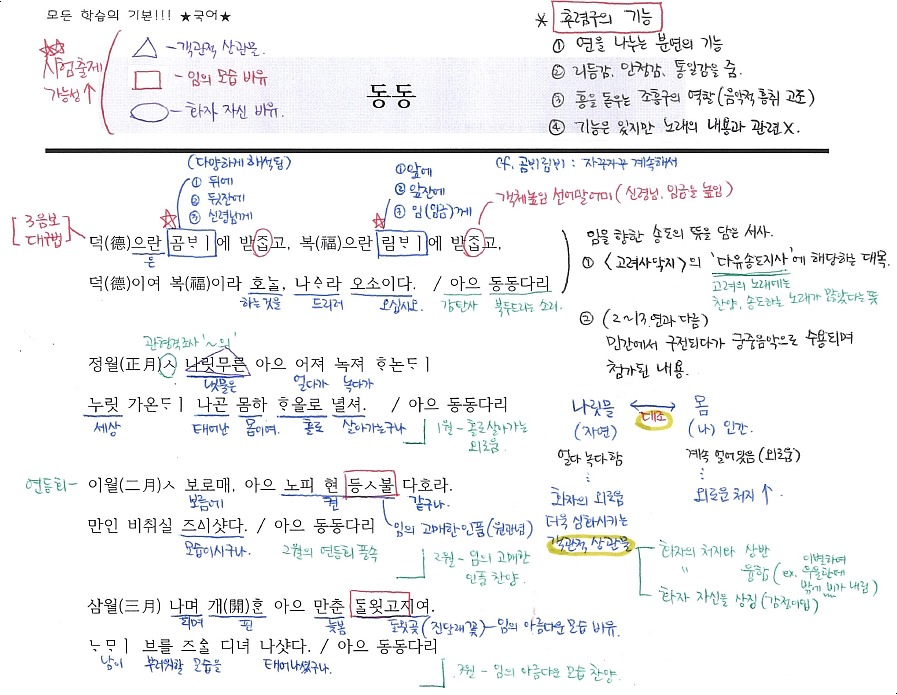 모든 학습의 기본!!! ★국어★
시험출제
가능성↑
△ - 객관적 상관물.
□ - 임의 모습 비유
○ - 화자 자신 비유.
동동
* 후렴구의 기능
① 연을 나누는 분연의 기능
② 리듬감, 안정감, 통일감을 줌.
③ 흥을 돋우는 조흥구의 역할 (음악적 흥취 고조)
④ 기능은 있지만 노래의 내용과 관련 X.
(다양하게 해석됨)
① 뒤에
② 뒷잔에
③ 신령님께
①앞에
②앞잔에
③임(임금)께
cf. 곰비림비 : 자꾸자꾸 계속해서
객체높임 선어말어미 (신령님, 임금을 높임)
3음보
대구법
덕(德)으란 곰ᄇᆡ에 받ᄌᆞᆸ고, 복(福)으란 림ᄇᆡ에 받ᄌᆞᆸ고,
은
덕(德)이여 복(福)이라 호ᄂᆞᆯ, 나ᅀᆞ라 오소이다. / 아으 동동다리
하는것을 드리러 오십시오. 감탄사 북두드리는 소리.
임을 향한 송도의 뜻을 담은 서사.
① <고려사악지>의 '다유송도지사'에 해당하는 대목.
고려의 노래에는
찬양, 송도하는 노래가 많았다는 뜻
② (2~13연과 다름)
민간에서 구전되다가 궁중음악으로 수용되며
첨가된 내용.
관형격조사 '~의'
정월(正月)ㅅ 나릿므른 아으 어져 녹져 ᄒᆞ논ᄃᆡ
냇물은 얼다가 녹다가
누릿 가온ᄃᆡ 나곤 몸하 ᄒᆞ올로 녈셔. / 아으 동동다리
세상 태어난 몸이여. 홀로 살아가는구나
1월 - 홀로 살아가는
외로움.
나릿물 ↔ 몸
대조
(자연) (나) 인간.
얼다 녹다 함 계속 얼어있음 (외로움)
화자의 외로움 외로운 처지↑
더욱 심화시키는
객관적 상관물
화자의 처지와 상반
〃 융합 (ex. 이별하여
우울한데
밖에 비가 내림)
화자 자신을 상징 (감정이입)
연등회 - 이월(二月)ㅅ 보로매, 아으 노피 현 등ㅅ불 다호라.
보름에 켠 같구나.
만인 비취실 즈ᅀᅵ샷다. / 아으 동동다리
모습이시구나. 2월의 연등회 풍속
임의 고매한 인품 (원관념)
2월 - 임의 고매한
인품 찬양.
삼월(三月) 나며 개(開)ᄒᆞᆫ 아으 만춘 ᄃᆞᆯ욋고지여.
되며 핀 늦봄 달욋꽃 (진달래꽃) - 임의 아름다운 모습 비유.
ᄂᆞᄆᆡ 브롤 즈ᅀᅳᆯ 디녀 나샷다. / 아으 동동다리
남이 부러워할 모습을 태어나셨구나.
3월 - 임의 아름다운 모습 찬양.